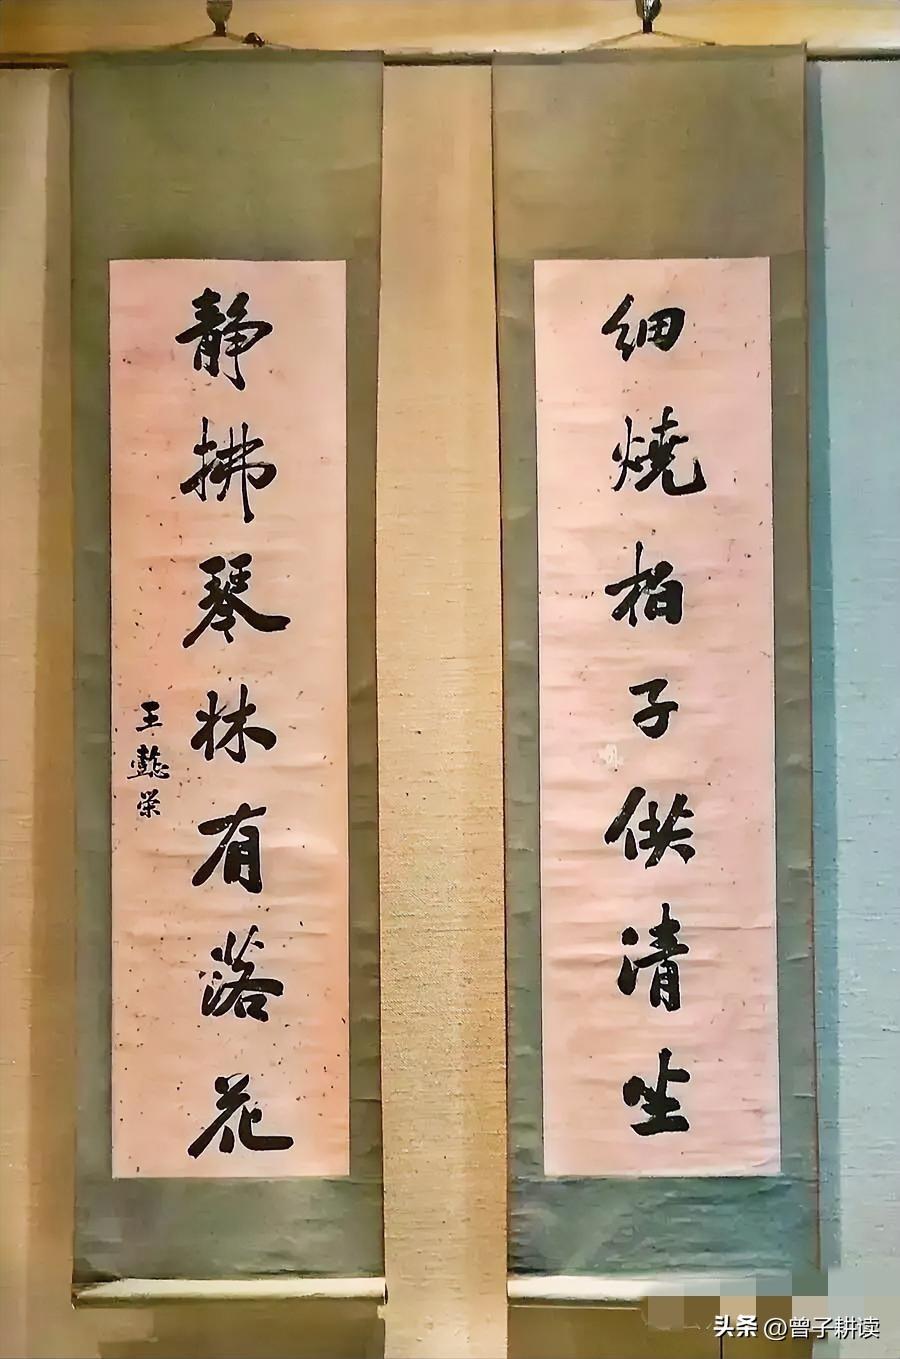 細燒柏子供清坐
静拂琴牀有落花
王懿榮
头条 @曾子耕读